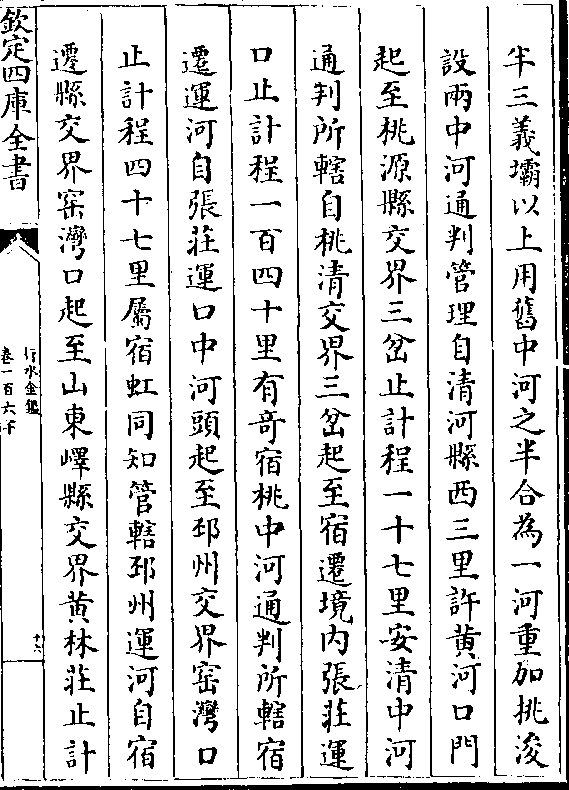 半三義壩以上用舊中河之半合為一河重加挑浚
設兩中河通判管理自清河縣西三里許黄河口門
起至桃源縣交界三岔止計程一十七里安清中河
通判所轄自桃清交界三岔起至宿遷境内張莊運
口止計程一百四十里有奇宿桃中河通判所轄宿
遷運河自張莊運口中河頭起至邳州交界窑灣口
止計程四十七里屬宿虹同知管轄邳州運河自宿
遷縣交界窑灣口起至山東嶧縣交界黄林莊止計
欽定四庫全書
行水金鑑
卷一百六十